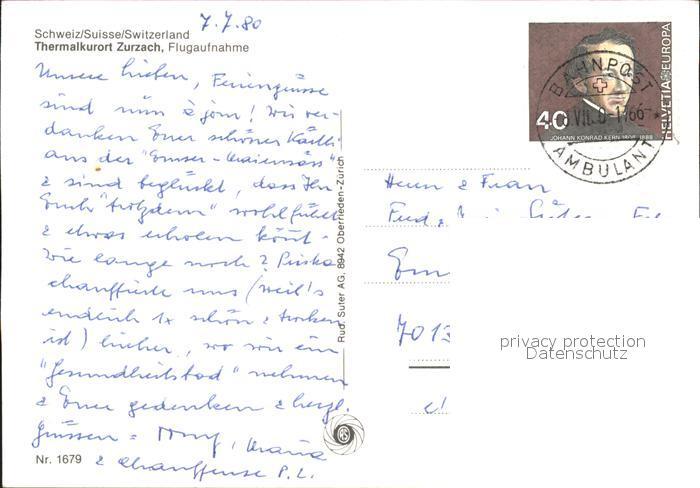 7.7.80
Schweiz/Suisse/Switzerland
Thermalkurort Zurzach, Flugaufnahme
Unsere lieben, Feriengrüsse
sind nun à jour! Wir ver-
danken Euer schönes Kärtli
aus der "Emser-Maiensäss"
& sind beglückt, dass Ihr
Euch "trotzdem" wohlfühlt
& etwas erholen könnt.
Wie lange noch?
chauffierte uns (weil's
endlich 1x schön & trocken
ist) hieher, wo wir ein
"Gesundheitsbad" nehmen
& Euer gedenken & herzl.
Grüssen =
& Chauffeuse P.L.
Nr. 1679
Rud. Suter AG, 8942 Oberrieden-Zürich
40
JOHANN KONRAD KERN 1808-1888
HELVETIA EUROPA
BAHNPOST
AMBULANT
Herrn & Frau
Em
7013
privacy protection
Datenschutz